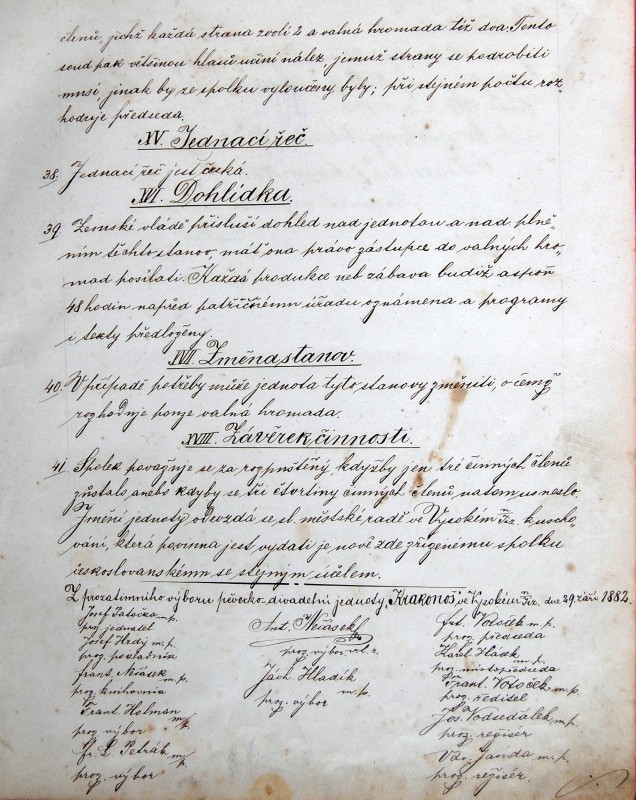 členů, jichž každá strana zvolí 2 a valná hromada též dva. Tento
soud pak většinou hlasů učiní nález, jemuž strany se podrobiti
musí jinak by ze spolku vyloučeny byly; při stejném počtu roz-
hoduje předseda.
XV. Jednací řeč.
38. Jednací řeč jest česká.
XVI. Dohlídka.
39. Zemské vládě přísluší dohled nad jednotou a nad plně-
ním těchto stanov, máť ona právo zástupce do valných hro-
mad posílati. Každá produkce neb zábava budiž aspoň
48 hodin napřed patřičnému úřadu oznámena a programy
i texty předloženy.
XVII. Změna stanov.
40. V případě potřeby může jednota tyto stanovy změniti, o čemž
rozhoduje pouze valná hromada.
XVIII. Závěrek činnosti.
41. Spolek považuje se za rozpuštěný, kdyžby jen tré činných členů
zůstalo, anebo kdyby se tři čtvrtiny činných členů na tom usneslo.
Jmění jednoty odevzdá se sl. městské radě ve Vysokém n/Jiz. k uscho-
vání, která povinna jest vydati je nově zde zřízenému spolku
českoslovanskému se stejným účelem.
Z prozatimního výboru pěvecko-divadelní jednoty „Krakonoš“ ve Vysokém n/Jiz. dne 29. září 1882.
Josef Patočka m.p. Ant. Nečásek Frt. Votoček m.p.
proz. jednatel proz. výbor. proz. předseda
Josef Hrdý m.p. Karel Hásek m.p.
proz. pokladník Jách. Hladík m.p. proz. místopředseda
Frant. Nečásek m.p. proz. výbor Frant. Votoček m.p.
proz. knihovník proz. ředitel
Frant. Holman m.p. Jos. Vodseďálek m.p.
proz. výbor proz. režisér
Fr. L. Petrák m.p. Vác. Janda m.p.
proz. výbor proz. režisér.